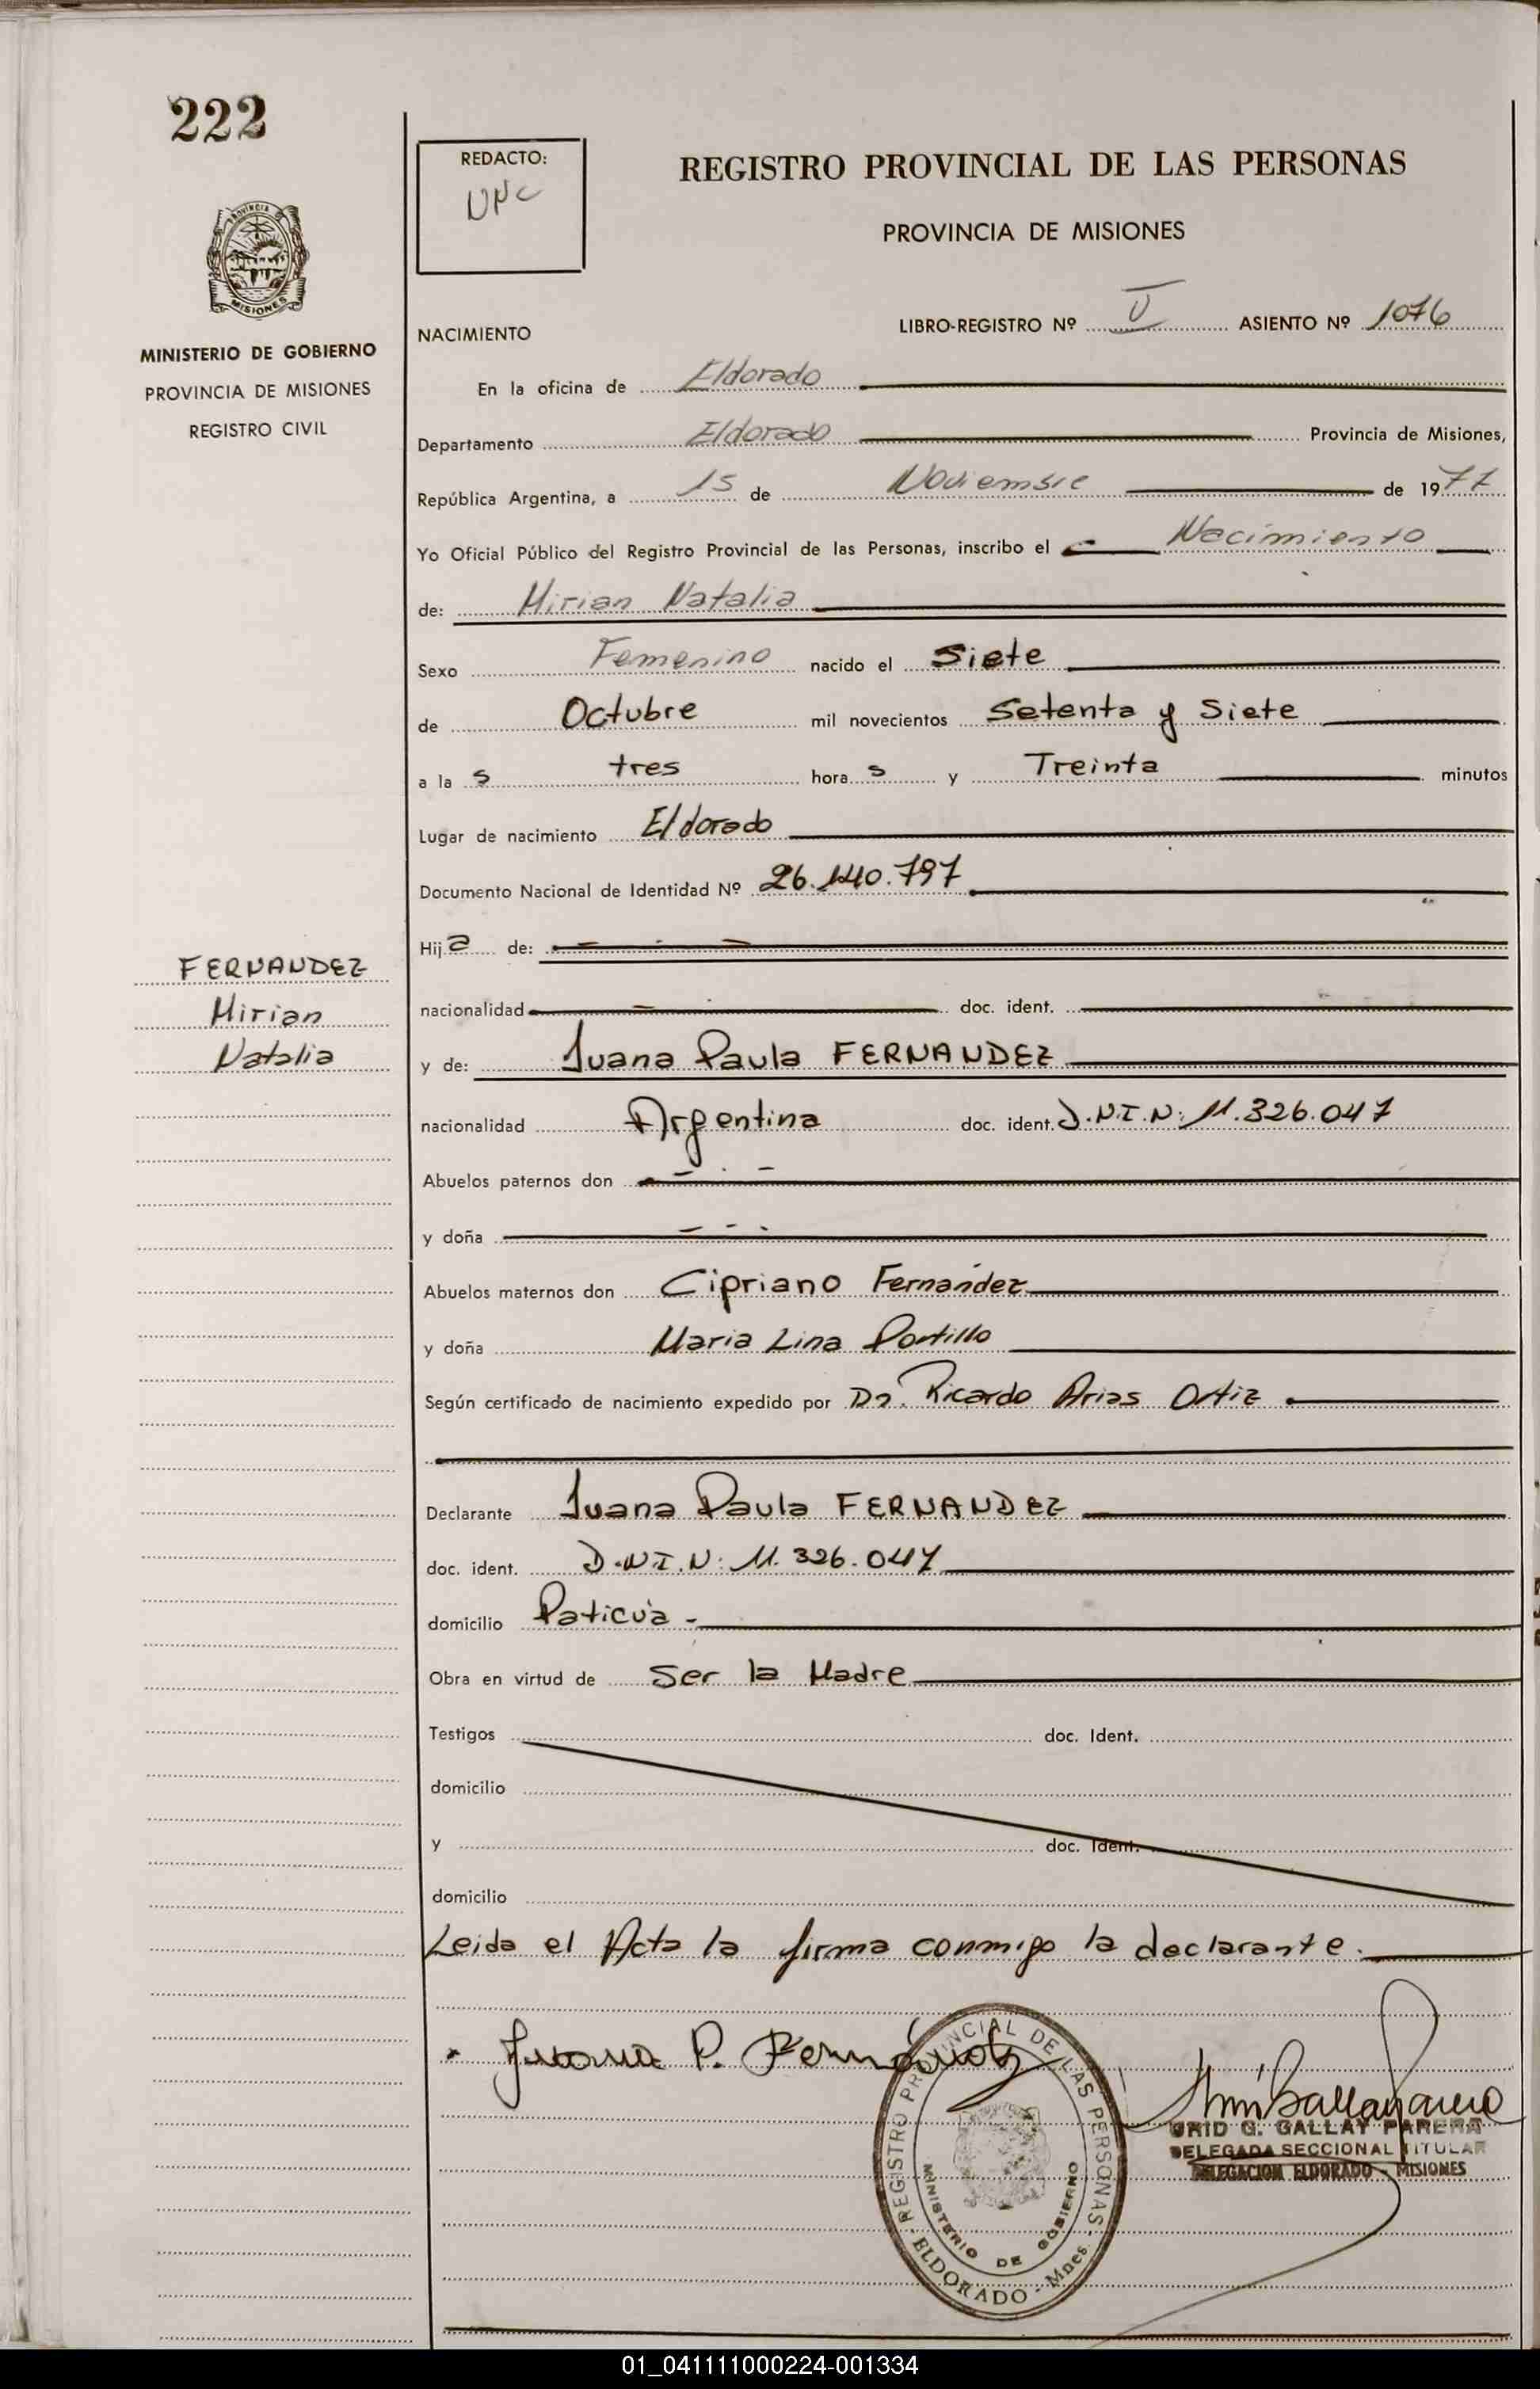 222
REDACTO:
REGISTRO PROVINCIAL DE LAS PERSONAS
PROVINCIA DE MISIONES
PROVINCIA
MISIONES
MINISTERIO DE GOBIERNO
PROVINCIA DE MISIONES
REGISTRO CIVIL
NACIMIENTO
LIBRO-REGISTRO Nº ASIENTO Nº 1076
En la oficina de Eldorado
Departamento Eldorado Provincia de Misiones,
República Argentina, a 15 de Noviembre de 1977
Yo Oficial Público del Registro Provincial de las Personas, inscribo el Nacimiento
de: Mirian Natalia
Sexo Femenino nacido el Siete
de Octubre mil novecientos Setenta y Siete
a la s tres hora s y Treinta minutos
Lugar de nacimiento Eldorado
Documento Nacional de Identidad Nº 26.140.797
Hij a de:
nacionalidad doc. ident.
FERNANDEZ
Mirian
Natalia
y de: Juana Paula FERNANDEZ
nacionalidad Argentina doc. ident. D.N.I.N: 11.326.047
Abuelos paternos don
y doña
Abuelos maternos don Cipriano Fernandez
y doña Maria Lina Portillo
Según certificado de nacimiento expedido por Dr. Ricardo Arias Ortiz
Declarante Juana Paula FERNANDEZ
doc. ident. D.N.I.N: 11.326.047
domicilio Paticua -
Obra en virtud de Ser la Madre
Testigos doc. Ident.
domicilio
y doc. Ident.
domicilio
Leida el Acta la firma conmigo la declarante.
Juana P. Fernández
REGISTRO PROVINCIAL DE LAS PERSONAS - ELDORADO - Mnes.
MINISTERIO DE GOBIERNO
G. GALLAY PARERA
DELEGADA SECCIONAL TITULAR
DELEGACION ELDORADO - MISIONES
01_041111000224-001334